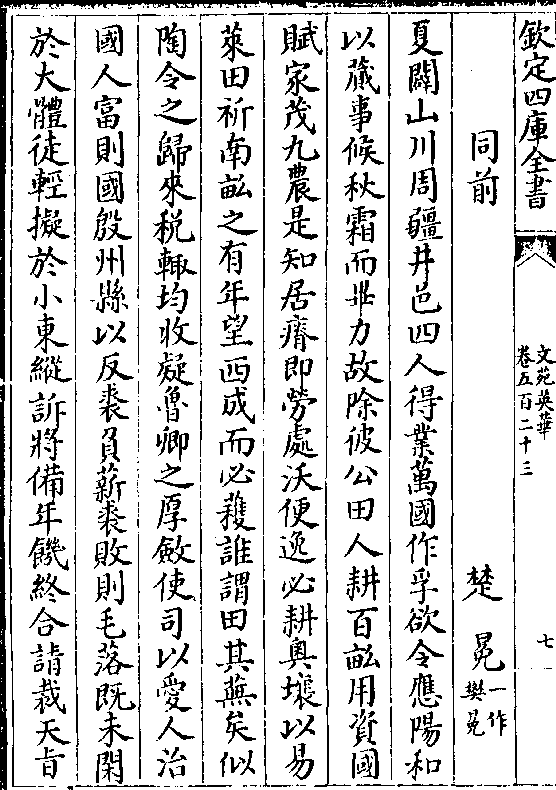 欽定四庫全書
文苑英華
卷五百二十三
七
同前
楚冕
一作
樊冕
夏闢山川周疆井邑四人得業萬國作孚欲令應陽和
以蕆事候秋霜而畢力故除彼公田人耕百畝用資國
賦家茂九農是知居瘠即勞處沃便逸必耕奥壤以易
萊田祈南畝之有年望西成而必穫誰謂田其蕪矣似
陶令之歸來税輙均收疑魯卿之厚斂使司以愛人治
國人富則國殷州縣以反裘負薪裘敗則毛落既未閑
於大體徒輕擬於小東縱訴將備年饑終合請裁天旨